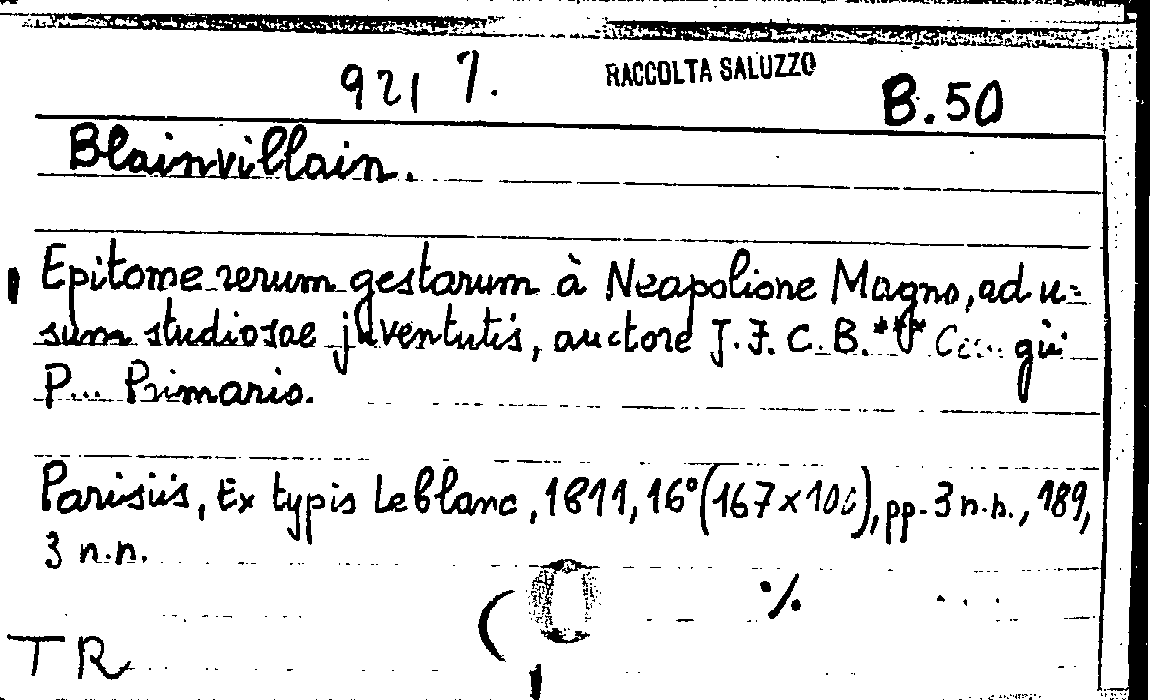 921 7. RACCOLTA SALUZZO B.50
Blainvillain.
Epitome rerum gestarum à Neapolione Magno, ad u=
sum studiosae juventutis, auctore J. F. C. B.***
P... Primario.
Parisiis, Ex typis Leblanc, 1811, 16° (167x10 ), pp. 3 n.n., 189,
3 n.n.
./.
TR